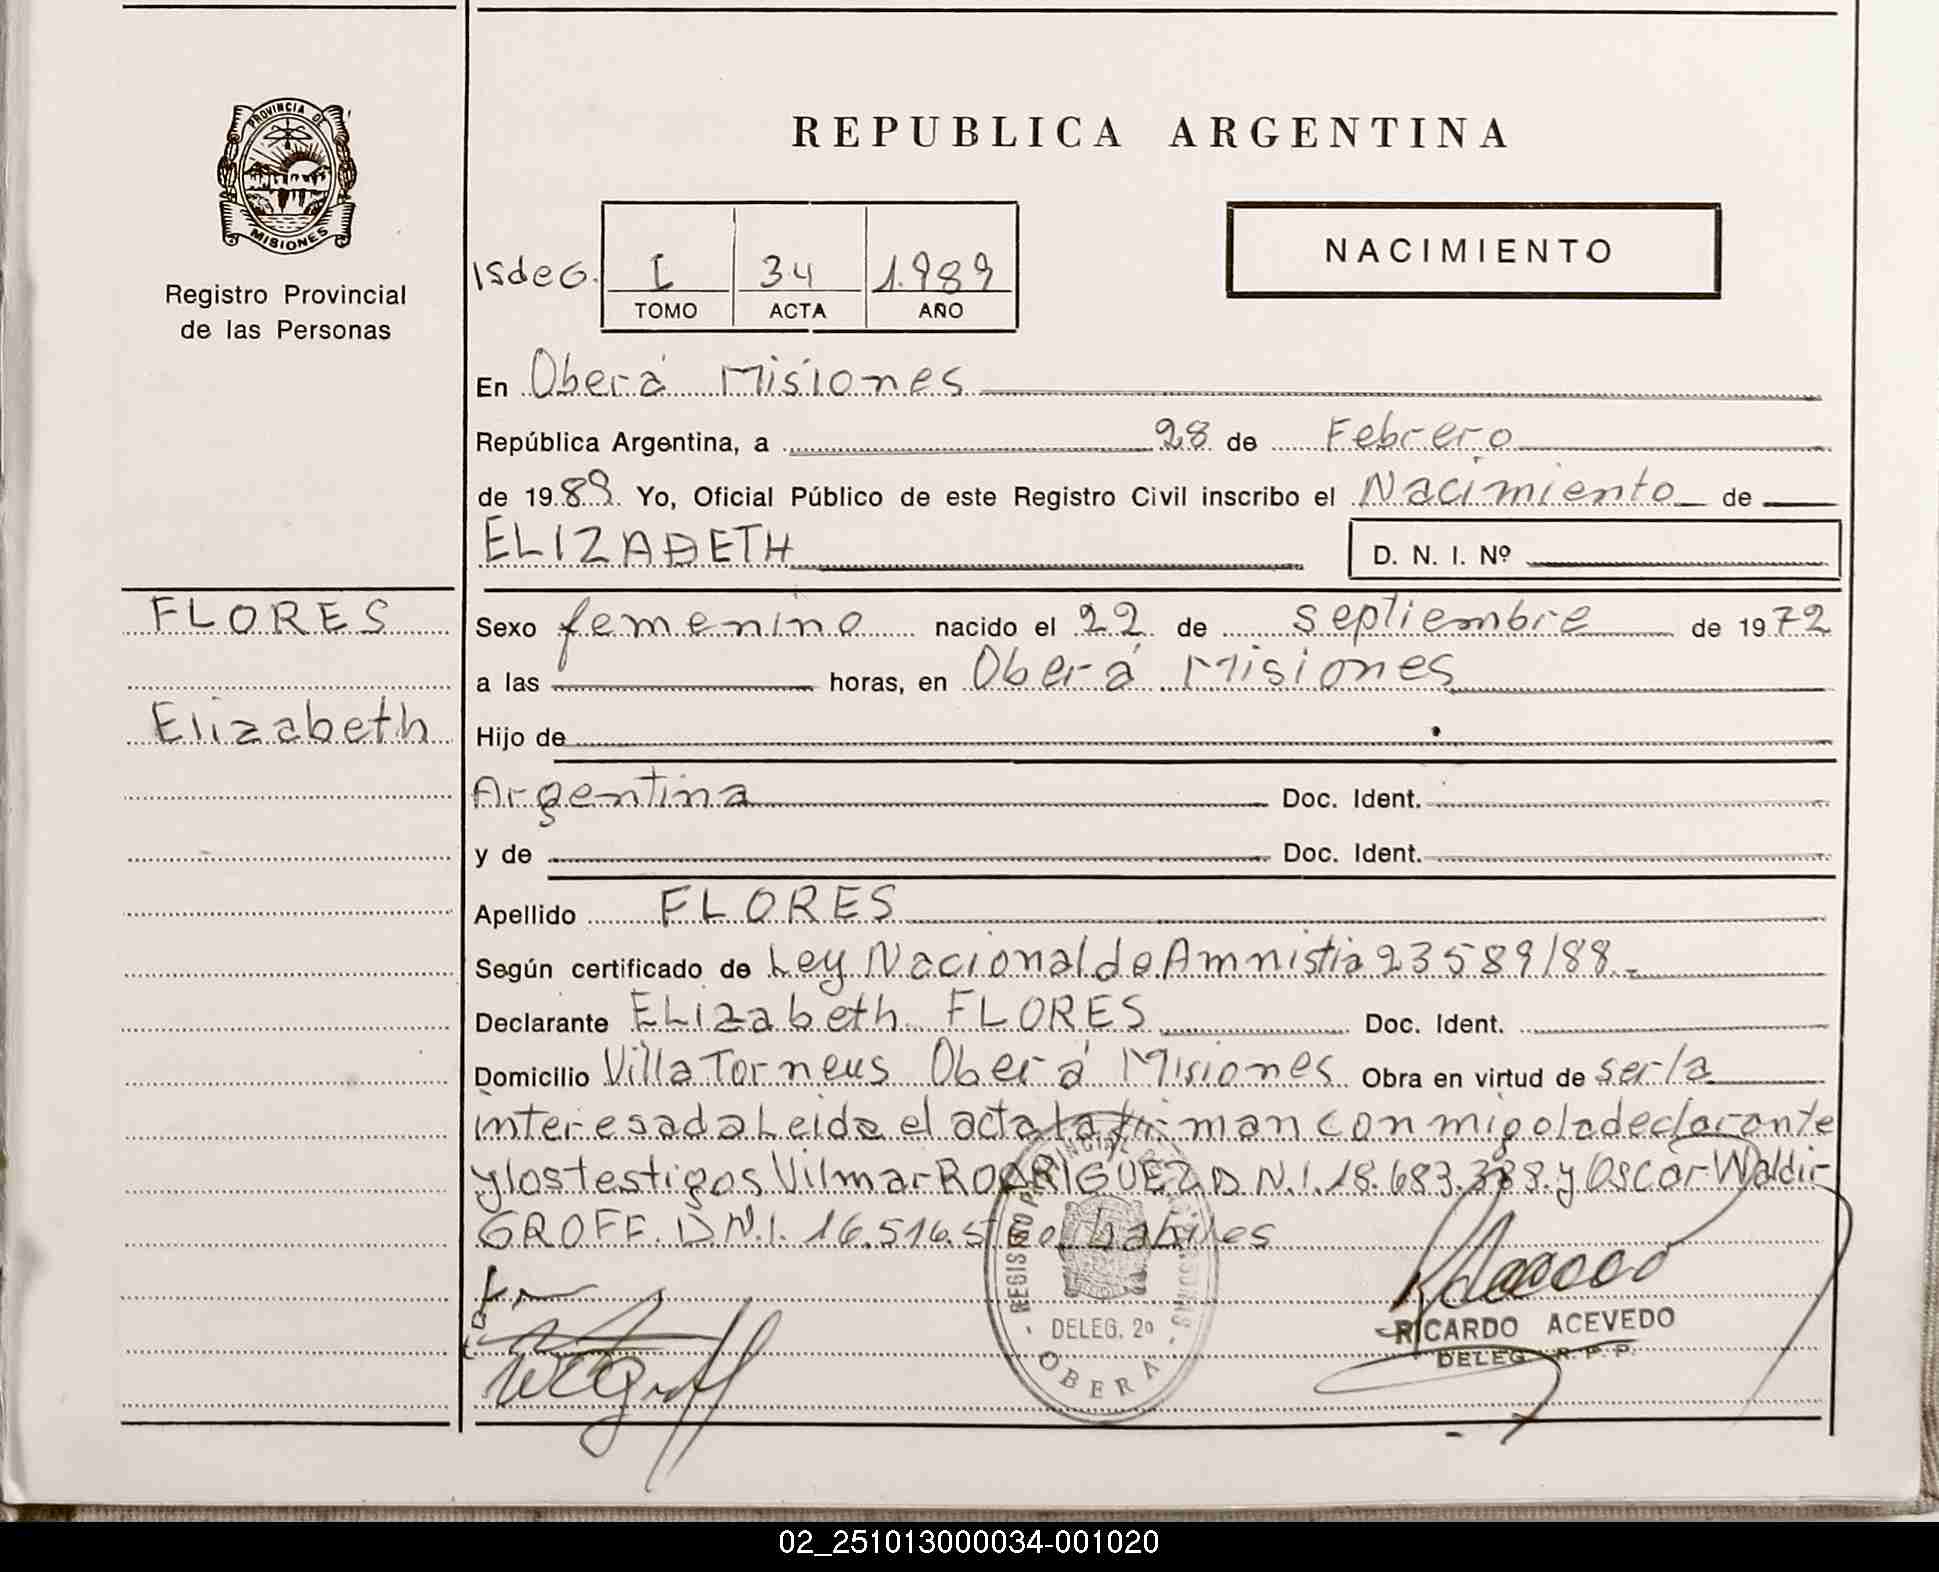 PROVINCIA DE
MISIONES
Registro Provincial
de las Personas
REPUBLICA ARGENTINA
NACIMIENTO
I 34 1.989
TOMO ACTA AÑO
En Oberá Misiones
República Argentina, a 28 de Febrero
de 1989. Yo, Oficial Público de este Registro Civil inscribo el Nacimiento de
ELIZABETH D. N. I. Nº
FLORES
Elizabeth
Sexo femenino nacido el 22 de septiembre de 1972
a las horas, en Oberá Misiones
Hijo de
Argentina Doc. Ident.
y de Doc. Ident.
Apellido FLORES
Según certificado de Ley Nacional de Amnistia 23589/88.-
Declarante ELizabeth FLORES Doc. Ident.
Domicilio Villa Torneus Oberá Misiones Obra en virtud de ser la
interesada Leida el acta la firman conmigo la declarante
y los testigos Vilmar RODRIGUEZ D.N.I. 18.683.388. y Oscar Waldir
GROFF. D.N.I. 16.516. habiles
DELEG. 2º
OBERA
RICARDO ACEVEDO
DELEG. R. P. P.
02_251013000034-001020